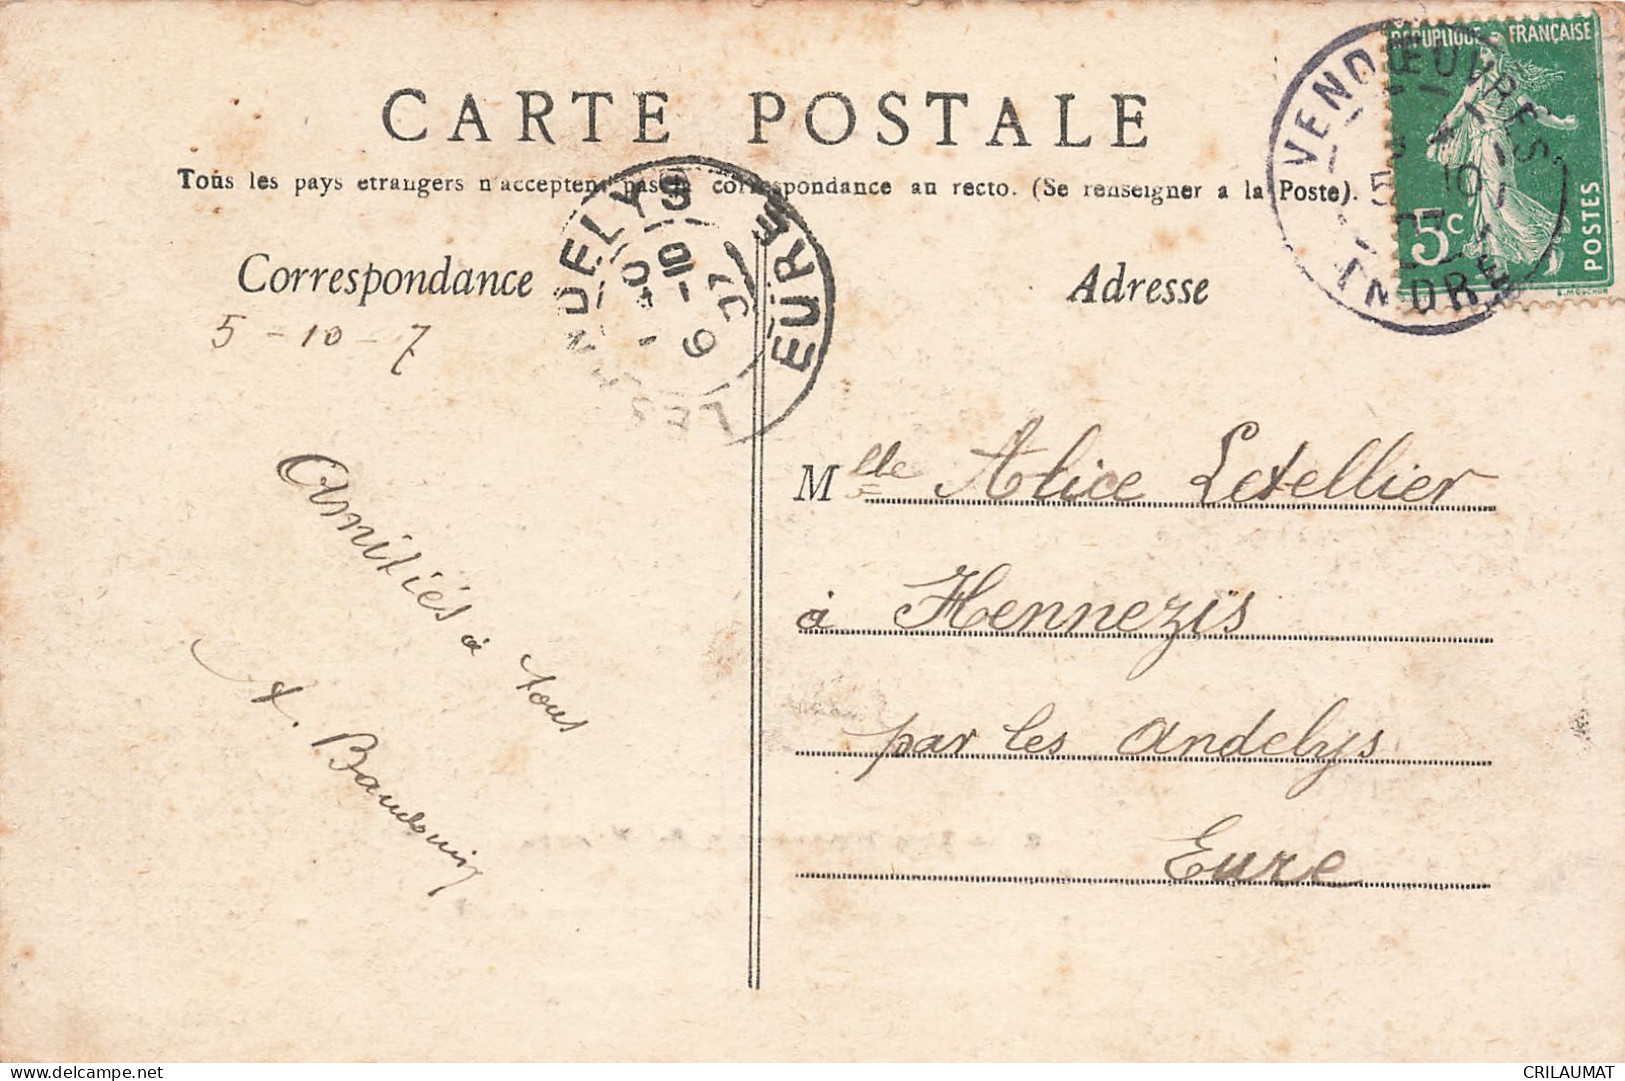 CARTE POSTALE
Tous les pays étrangers n'acceptent pas la correspondance au recto. (Se renseigner à la Poste).
Correspondance
Adresse
RÉPUBLIQUE FRANÇAISE
POSTES
5c
VENDŒUVRES
5 10
INDRE
LES ANDELYS
6-10
07
EURE
5-10-7
Amitiés à tous
Baudouin
Mlle Alice Letellier
à Hennezis
par les Andelys
Eure
www.delcampe.net
CRILAUMAT